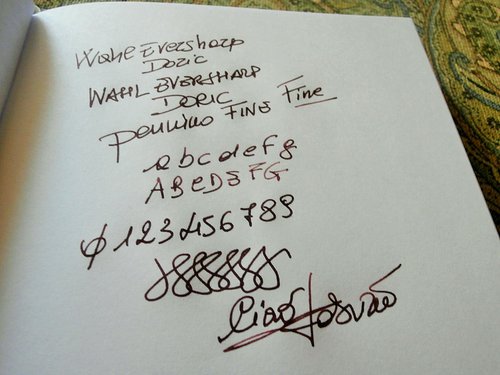 Wahl Eversharp
Doric
WAHL EVERSHARP
DORIC
Pennino FINE Fine
abcdefg
ABCDEFG
0123456789
Ciao